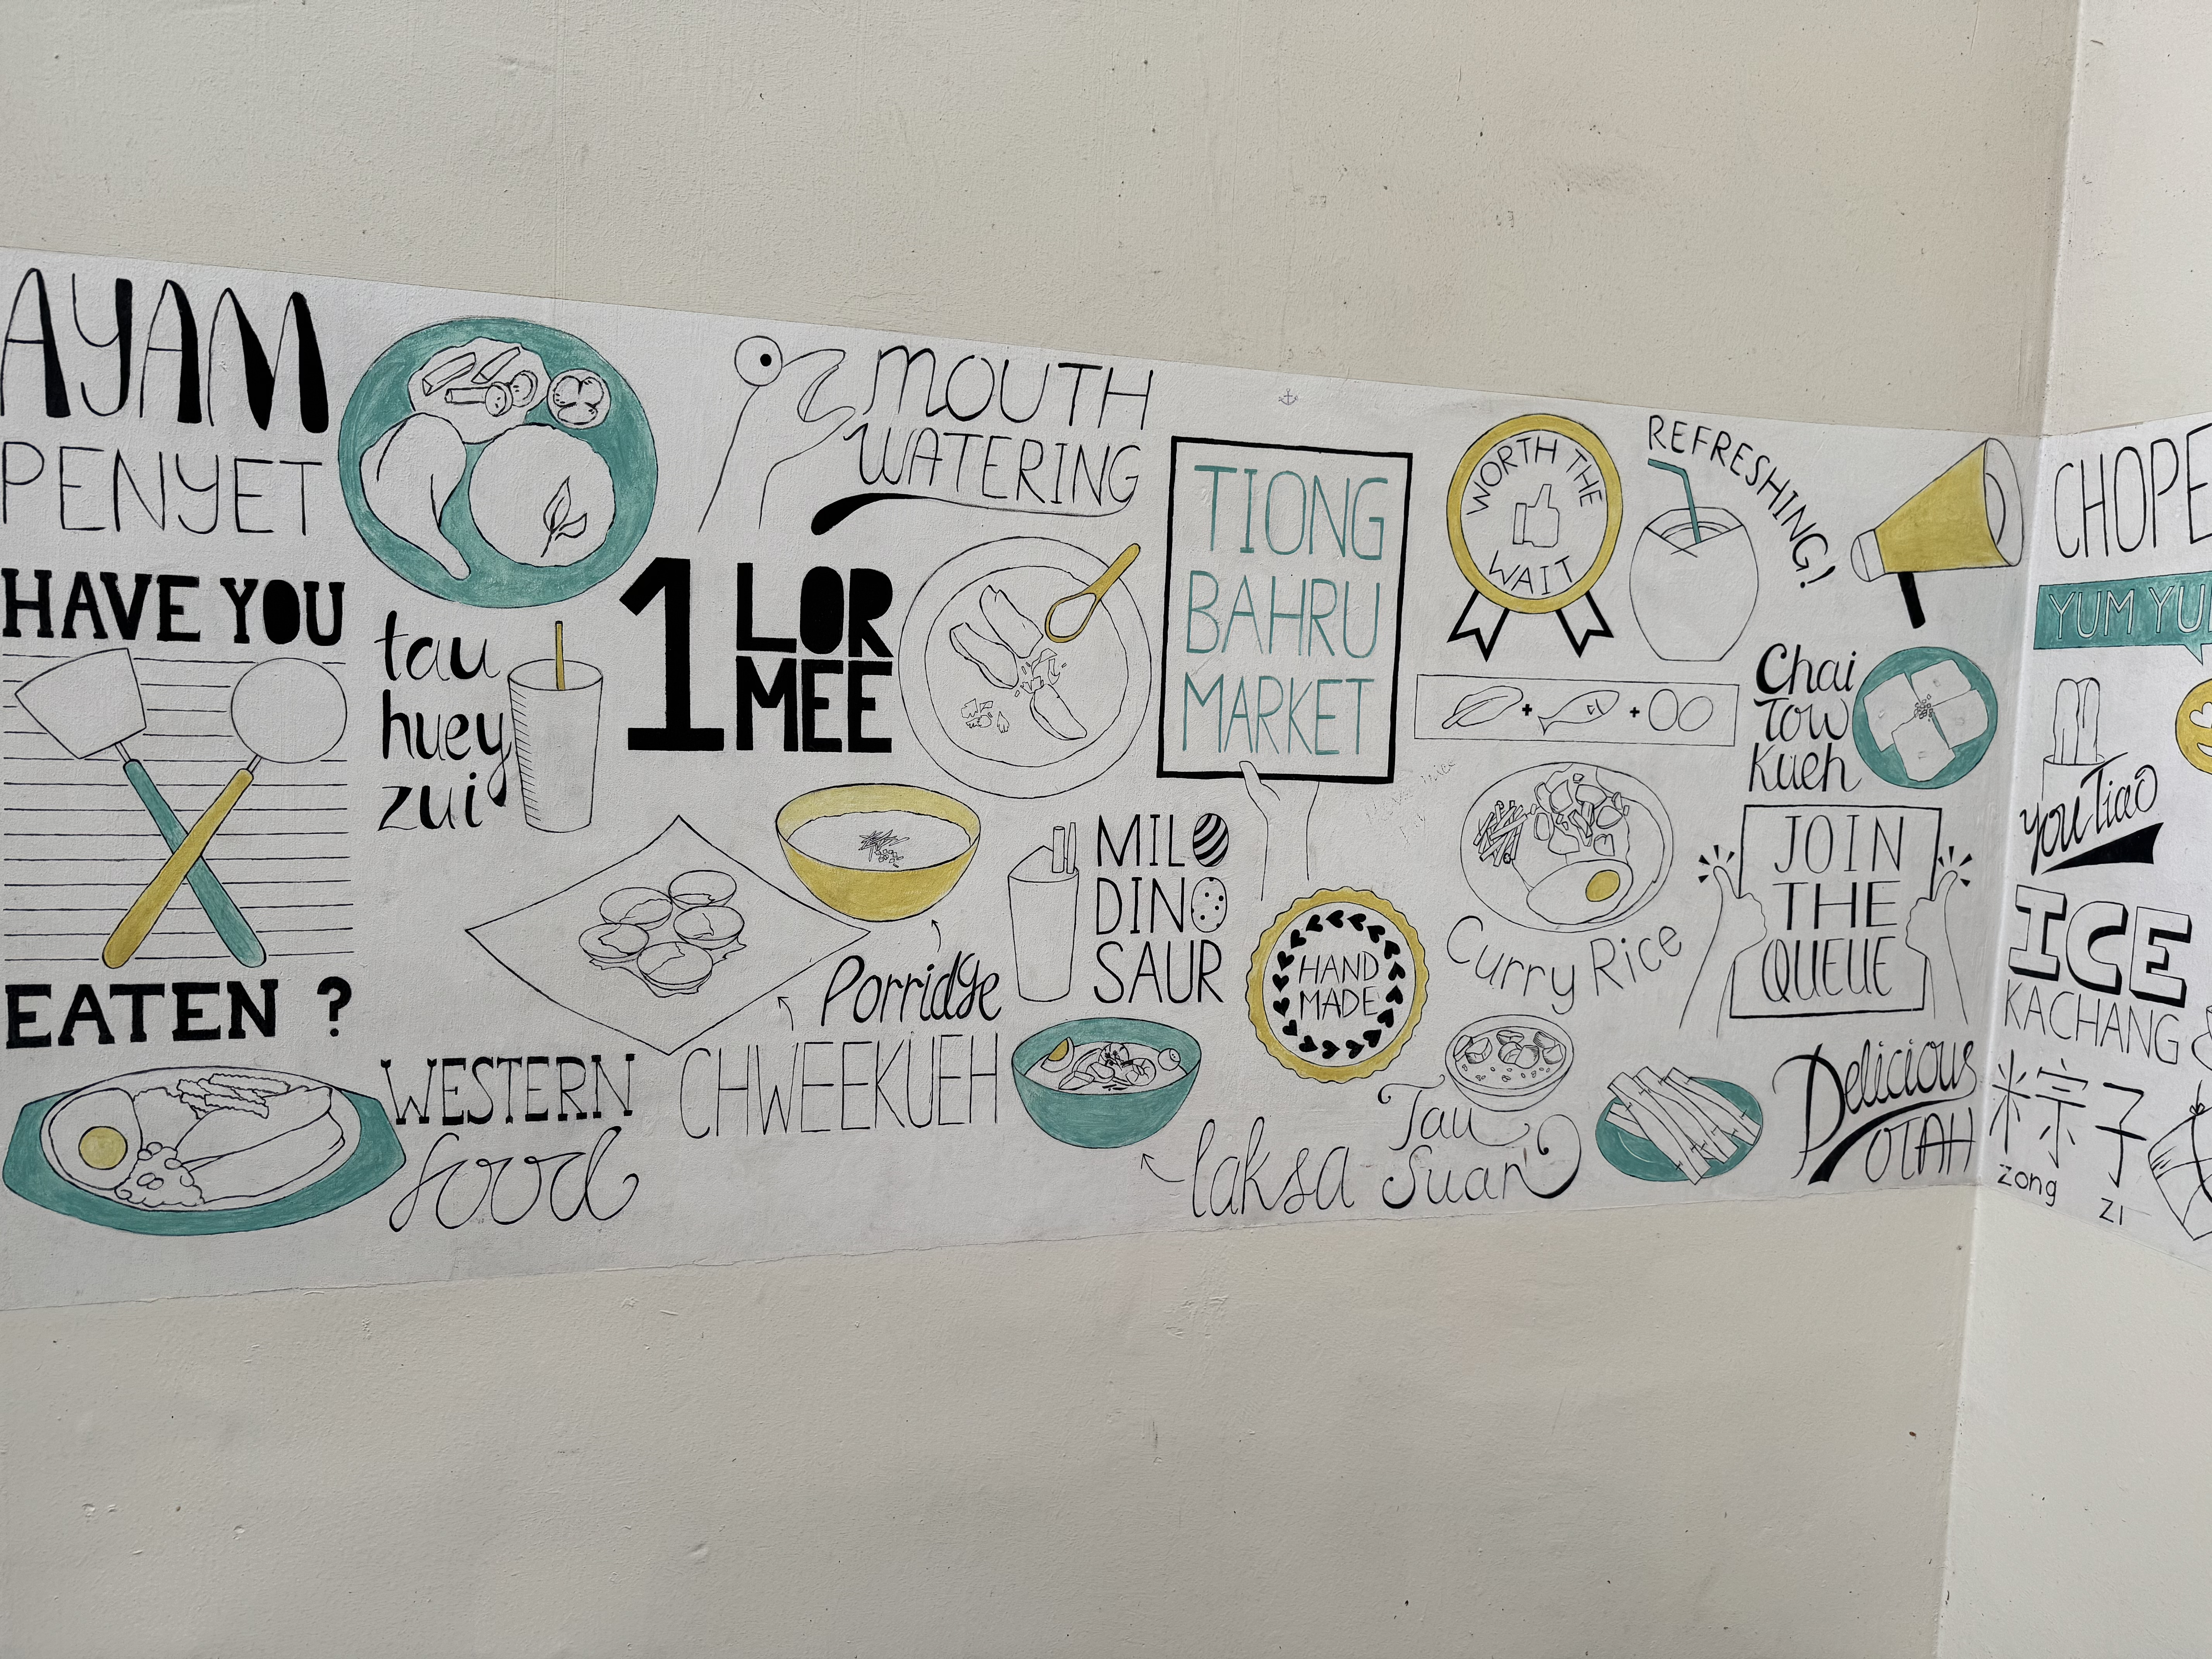 AYAM
PENYET
HAVE YOU
EATEN ?
WESTERN
food
tau
huey
zui
MOUTH
WATERING
1 LOR
MEE
Porridge
CHWEEKUEH
MILO
DINO
SAUR
laksa
TIONG
BAHRU
MARKET
HAND
MADE
WORTH THE
WAIT
REFRESHING!
Curry Rice
Tau
Suan
Chai
Tow
Kueh
JOIN
THE
QUEUE
Delicious
OTAH
CHOPE
YUM YU
You Tiao
ICE
KACHANG
粽子
zong
zi